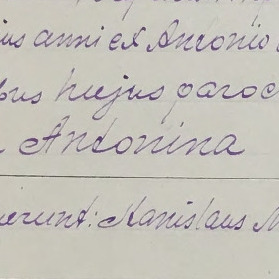 ius anni ex Antonio
bus hujus paroc
Antonina
erunt: Stanislaus M